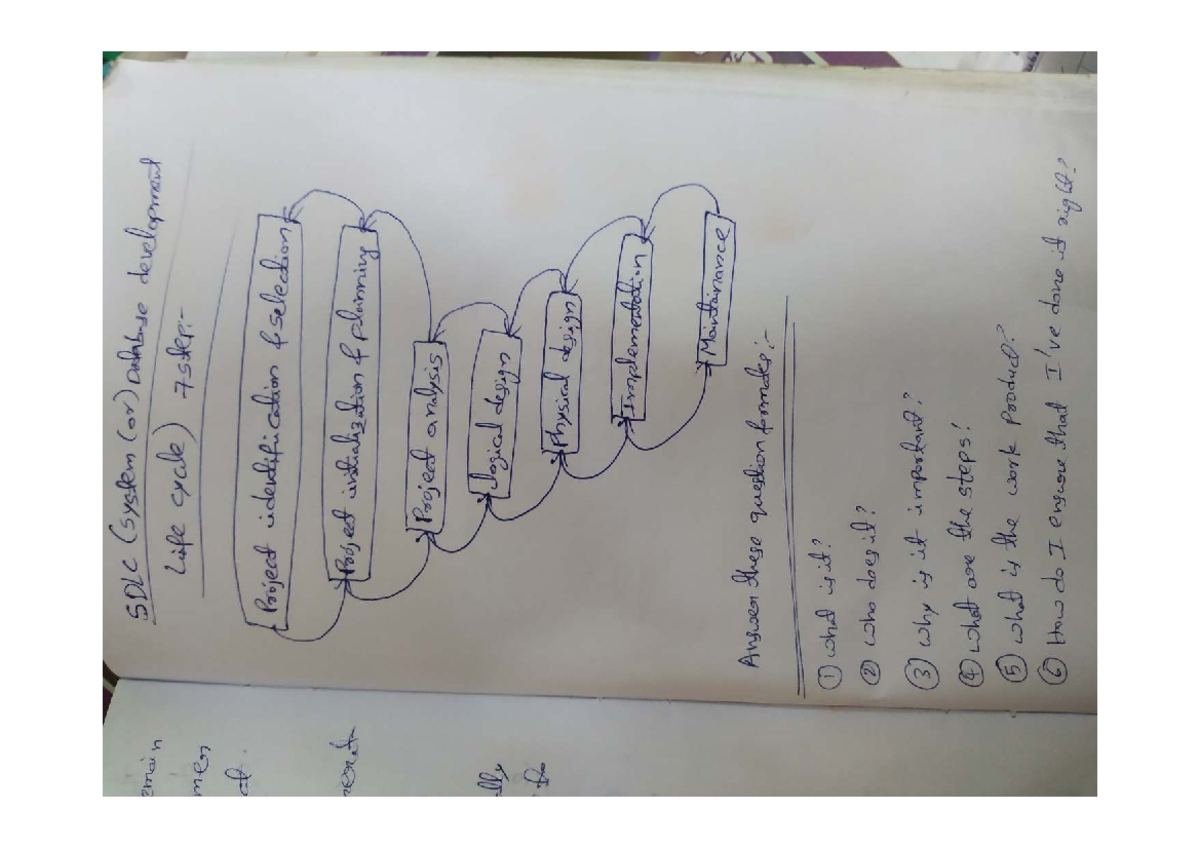 SDLC (system (or) Database development
Life cycle) 7 step:-
Project identification & selection
Project initialization & planning
Project analysis
logical design
Physical design
Implementation
Maintainance
Answer these question formates:-
① what is it?
② who does it?
③ why is it important?
④ what are the steps?
⑤ what is the work product?
⑥ How do I ensure that I've done it right?
emain
mer
at.
ally